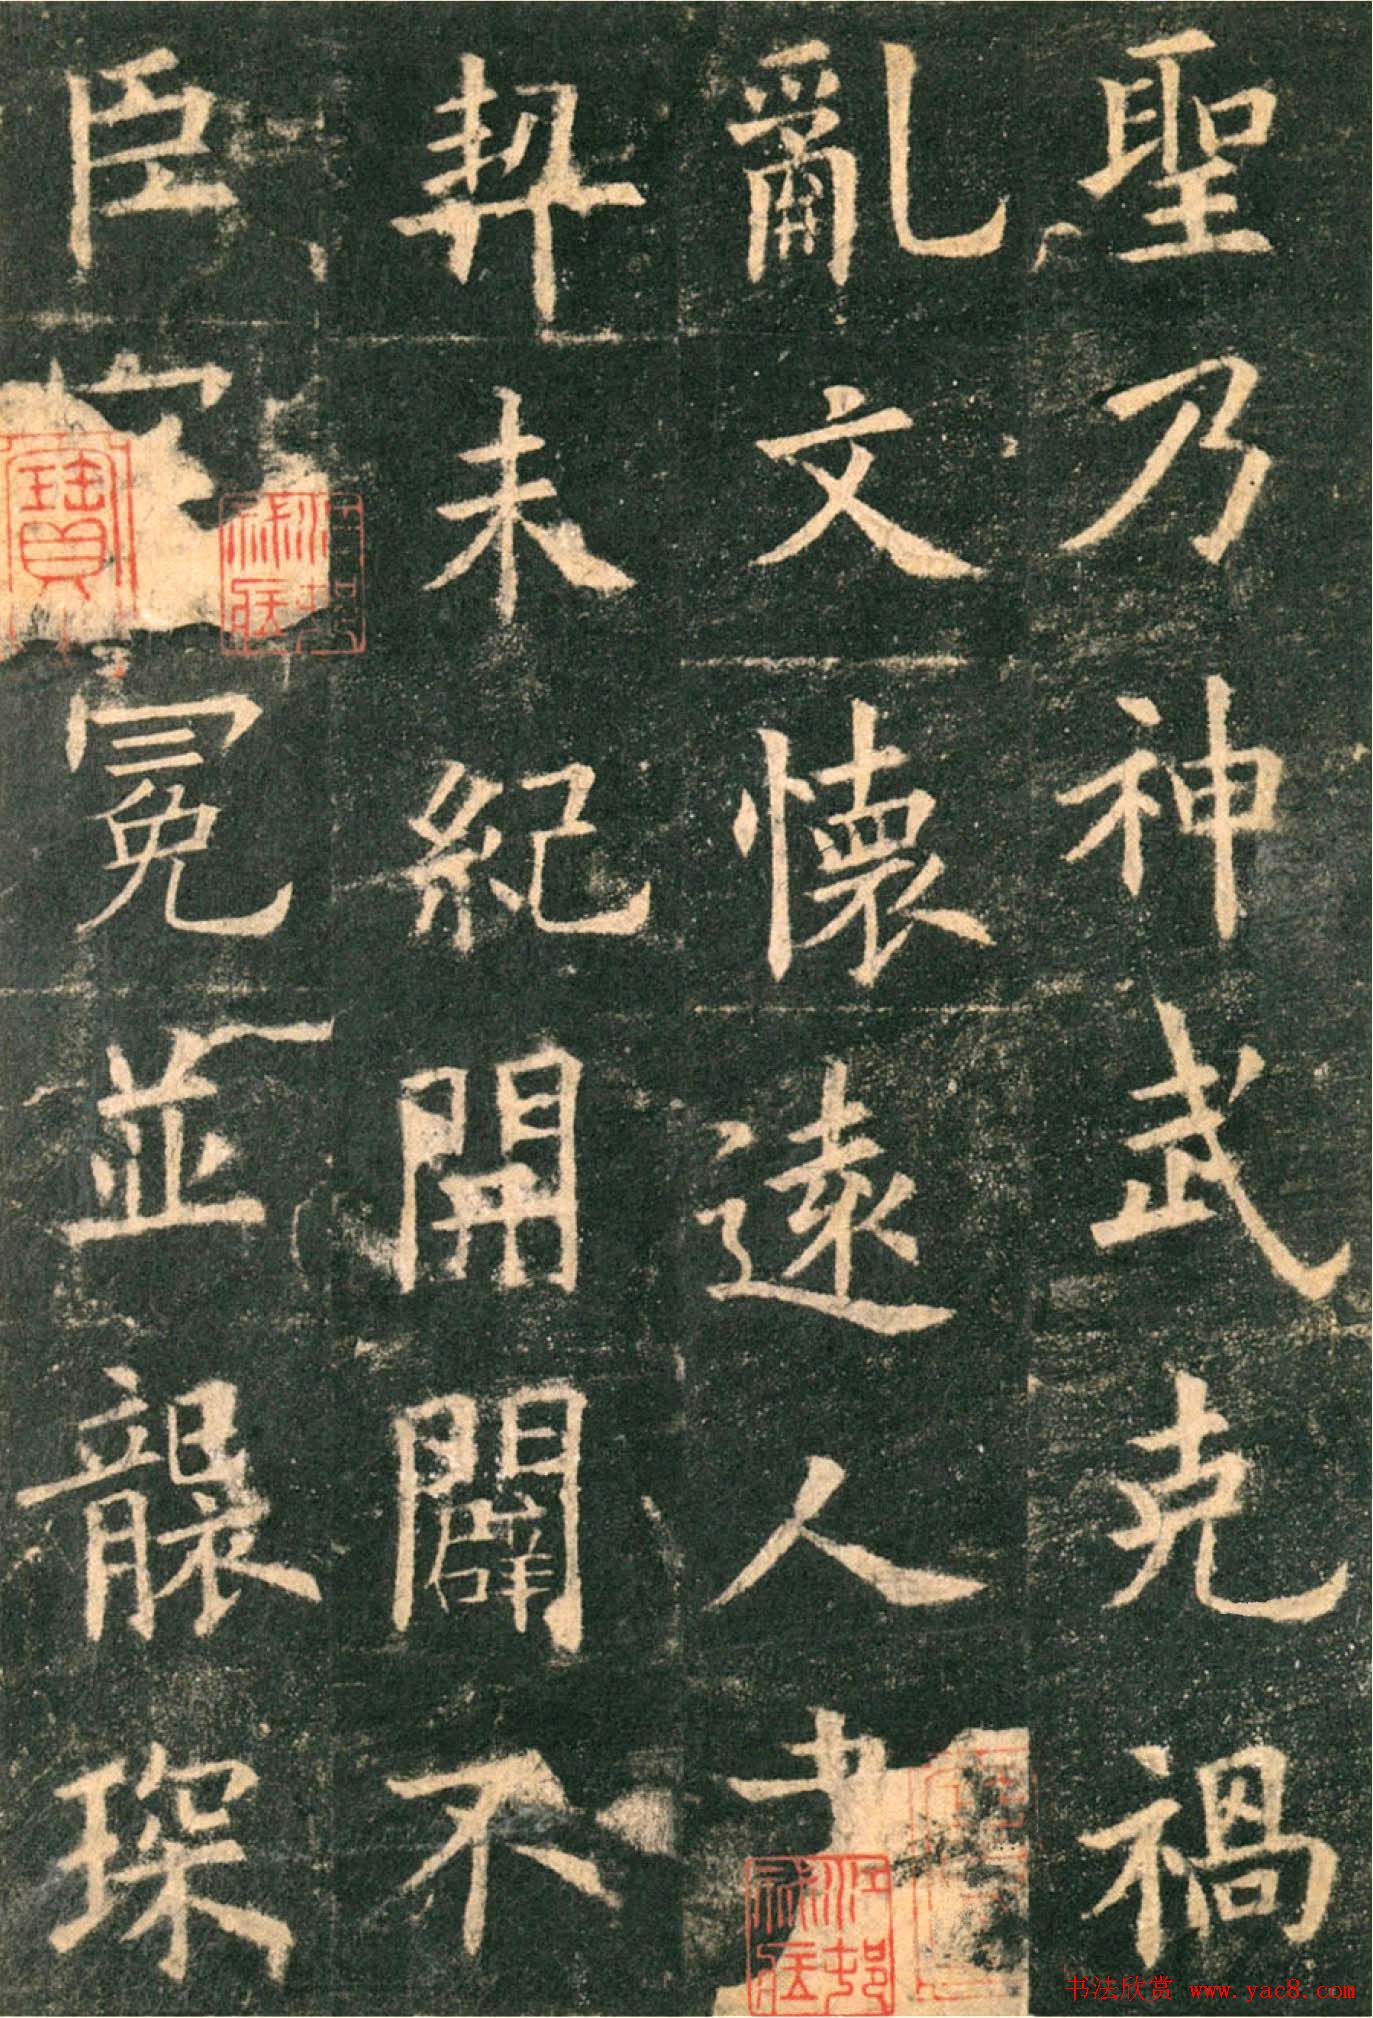 聖乃神武克禍
亂文懷遠人書
契未紀開闢不
臣冠冕並襲琛
寶
书法欣赏 www.yac8.com